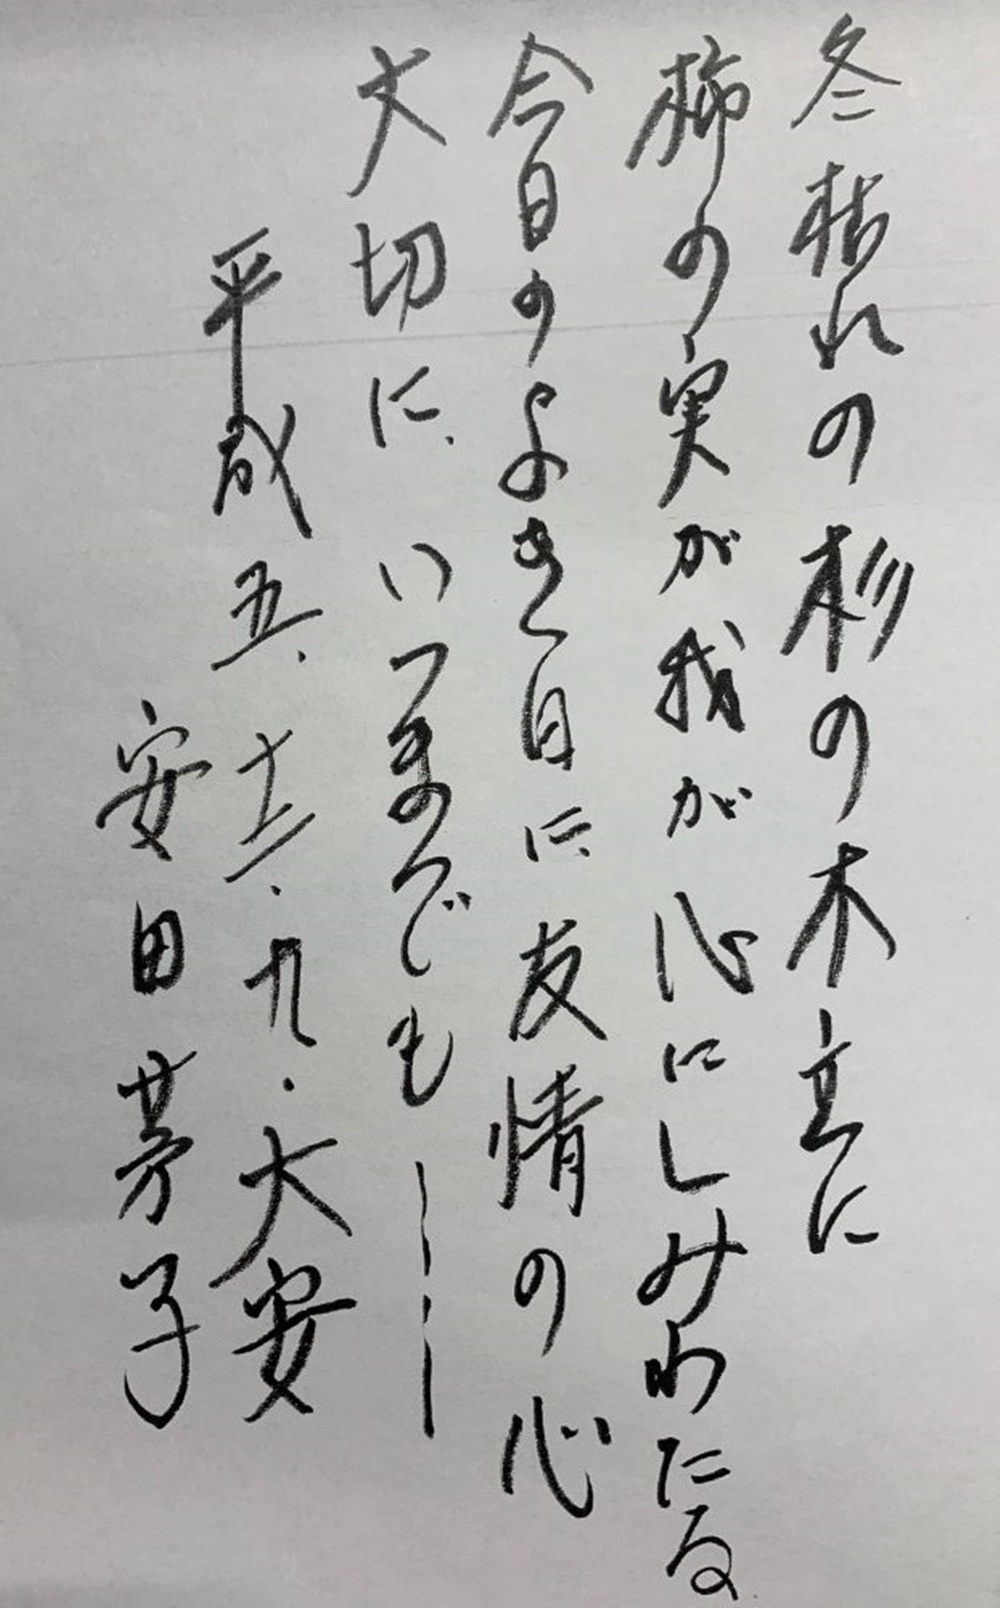 冬枯れの杉の木立に
柿の実が我が心にしみわたる
今日のよき日に友情の心
大切に いつまでも――
平成五、十二、九・大安
安田芳子